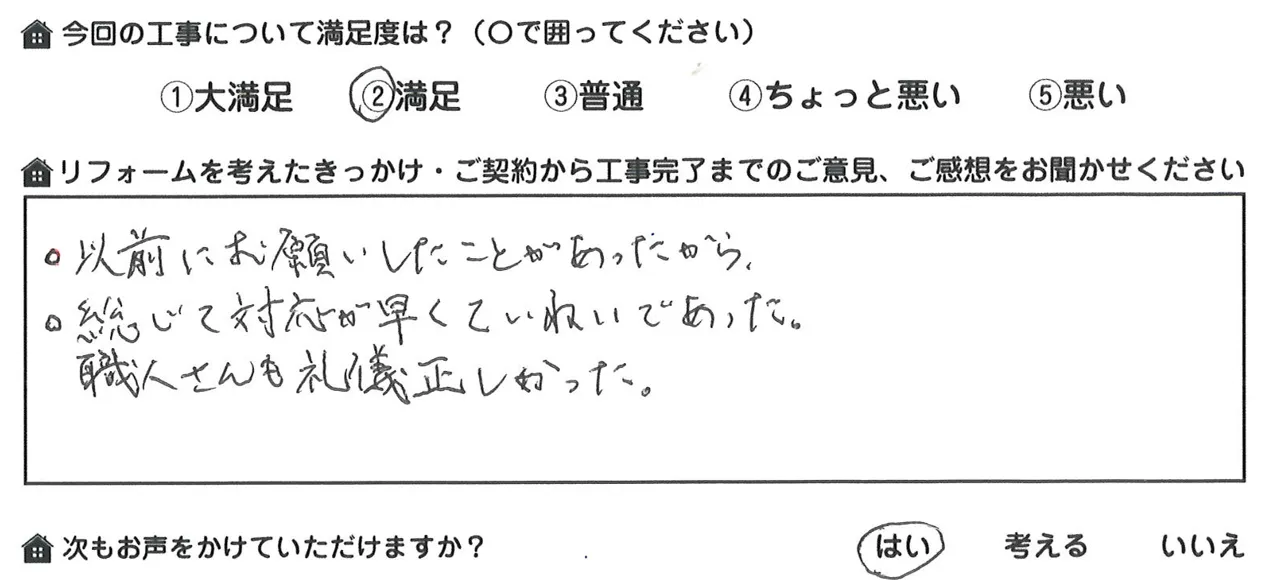 今回の工事について満足度は？（〇で囲ってください）
①大満足 ②満足 ③普通 ④ちょっと悪い ⑤悪い
リフォームを考えたきっかけ・ご契約から工事完了までのご意見、ご感想をお聞かせください
○以前にお願いしたことがあったから、
○総じて対応が早くていねいであった。
職人さんも礼儀正しかった。
次もお声をかけていただけますか？ はい 考える いいえ